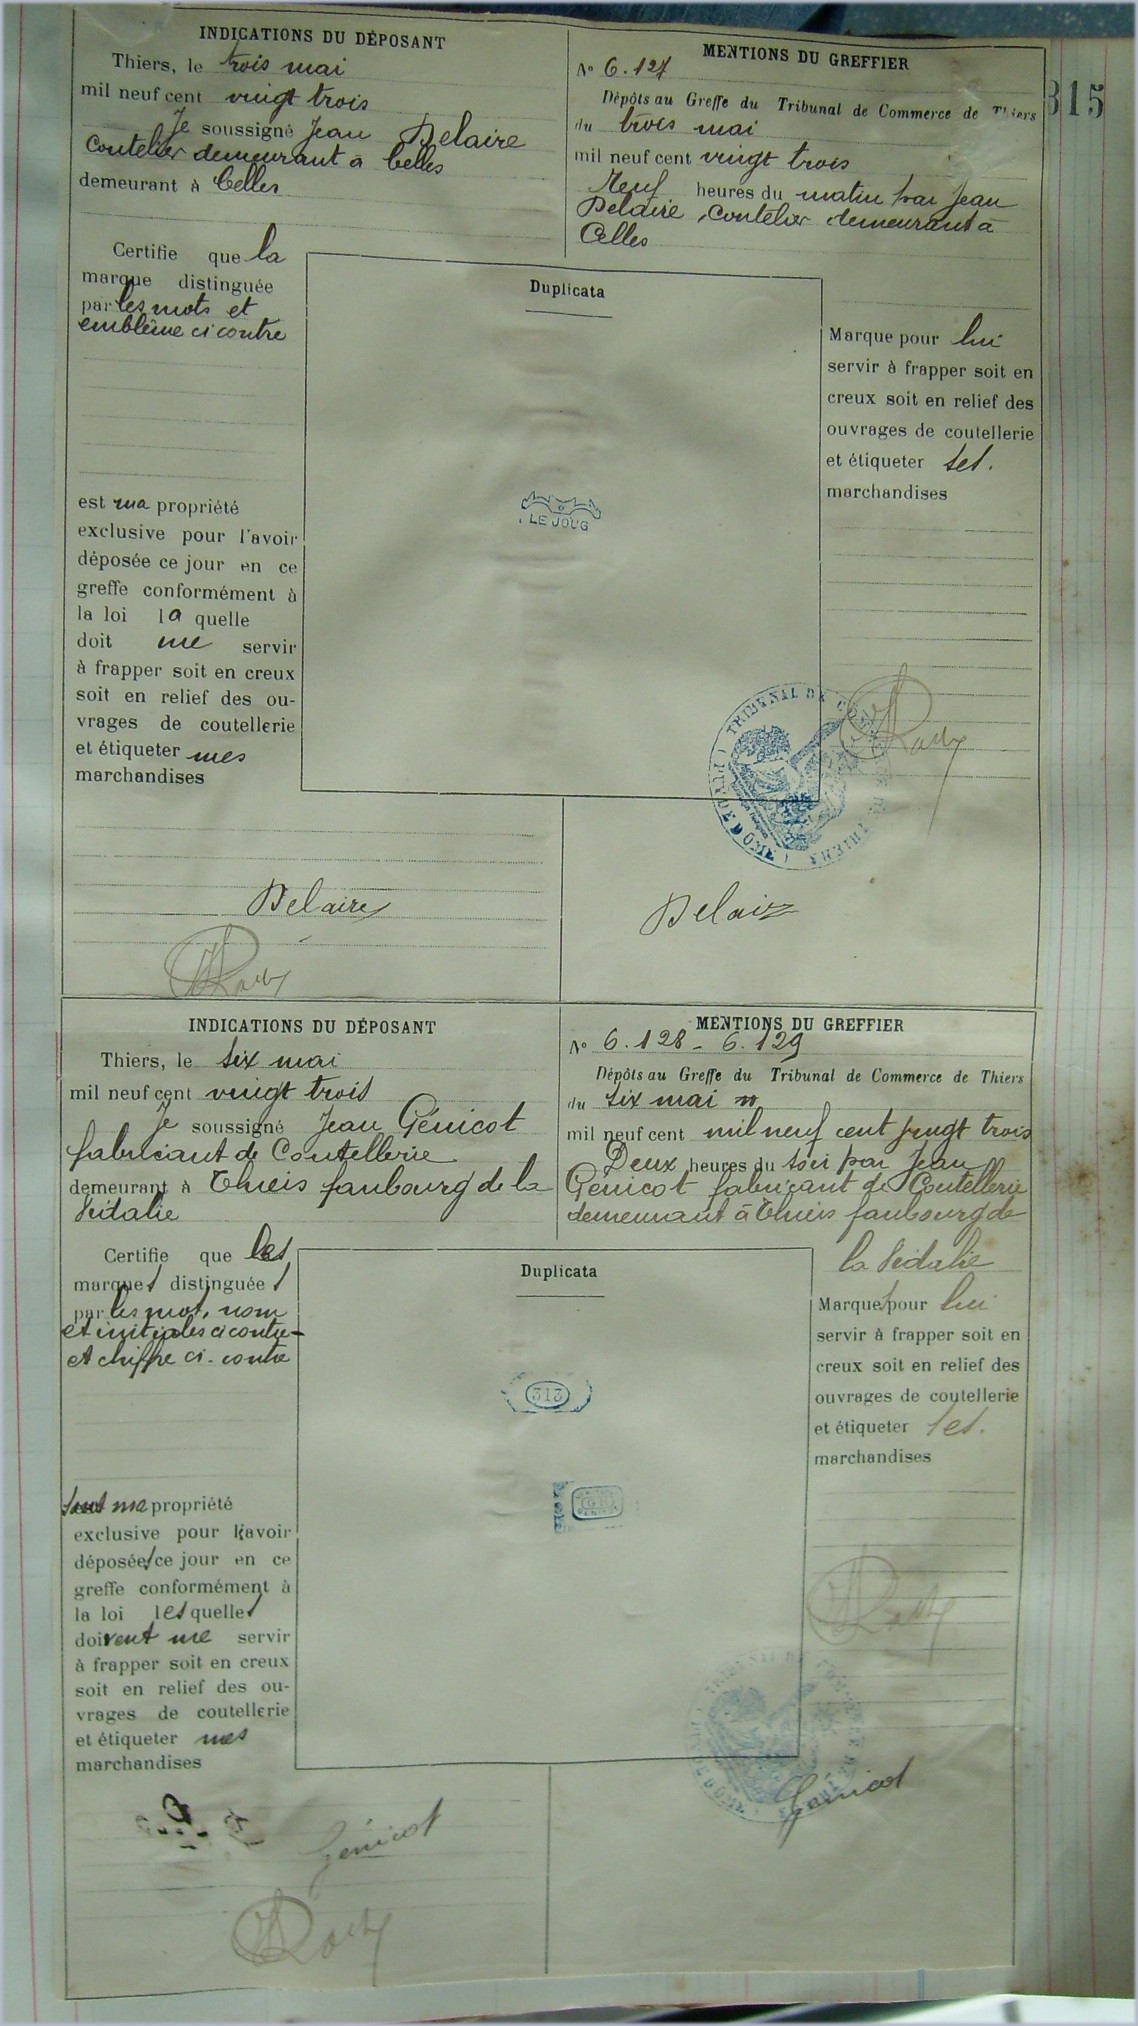 315
INDICATIONS DU DÉPOSANT
Thiers, le trois mai
mil neuf cent vingt trois
Je soussigné Jean Delaire
Coutelier demeurant à Celles
demeurant à Celles
Certifie que la
marque distinguée
par les mots et
emblême ci contre
est ma propriété
exclusive pour l'avoir
déposée ce jour en ce
greffe conformément à
la loi la quelle
doit me servir
à frapper soit en creux
soit en relief des ou-
vrages de coutellerie
et étiqueter mes
marchandises
Delaire
MENTIONS DU GREFFIER
N° 6.127
Dépôts au Greffe du Tribunal de Commerce de Thiers
du trois mai
mil neuf cent vingt trois
Neuf heures du matin par Jean
Delaire, Coutelier demeurant à
Celles
Duplicata
LE JOUG
Marque pour lui
servir à frapper soit en
creux soit en relief des
ouvrages de coutellerie
et étiqueter ses.
marchandises
TRIBUNAL DE COMMERCE DE THIERS (PUY DE DOME)
Delaire
INDICATIONS DU DÉPOSANT
Thiers, le six mai
mil neuf cent vingt trois
Je soussigné Jean Génicot
fabricant de Coutellerie
demeurant à Thiers faubourg de la
Vidalie
Certifie que les
marques distinguées
par les mot, nom
et initiales ci contre
et chiffre ci-contre
sont ma propriété
exclusive pour l'avoir
déposées ce jour en ce
greffe conformément à
la loi lesquelles
doivent me servir
à frapper soit en creux
soit en relief des ou-
vrages de coutellerie
et étiqueter mes
marchandises
Génicot
MENTIONS DU GREFFIER
N° 6.128 - 6.129
Dépôts au Greffe du Tribunal de Commerce de Thiers
du six mai
mil neuf cent mil neuf cent vingt trois
Deux heures du soir par Jean
Génicot fabricant de Coutellerie
demeurant à Thiers faubourg de
la Vidalie
Duplicata
313
Marques pour lui
servir à frapper soit en
creux soit en relief des
ouvrages de coutellerie
et étiqueter ses.
marchandises
Génicot